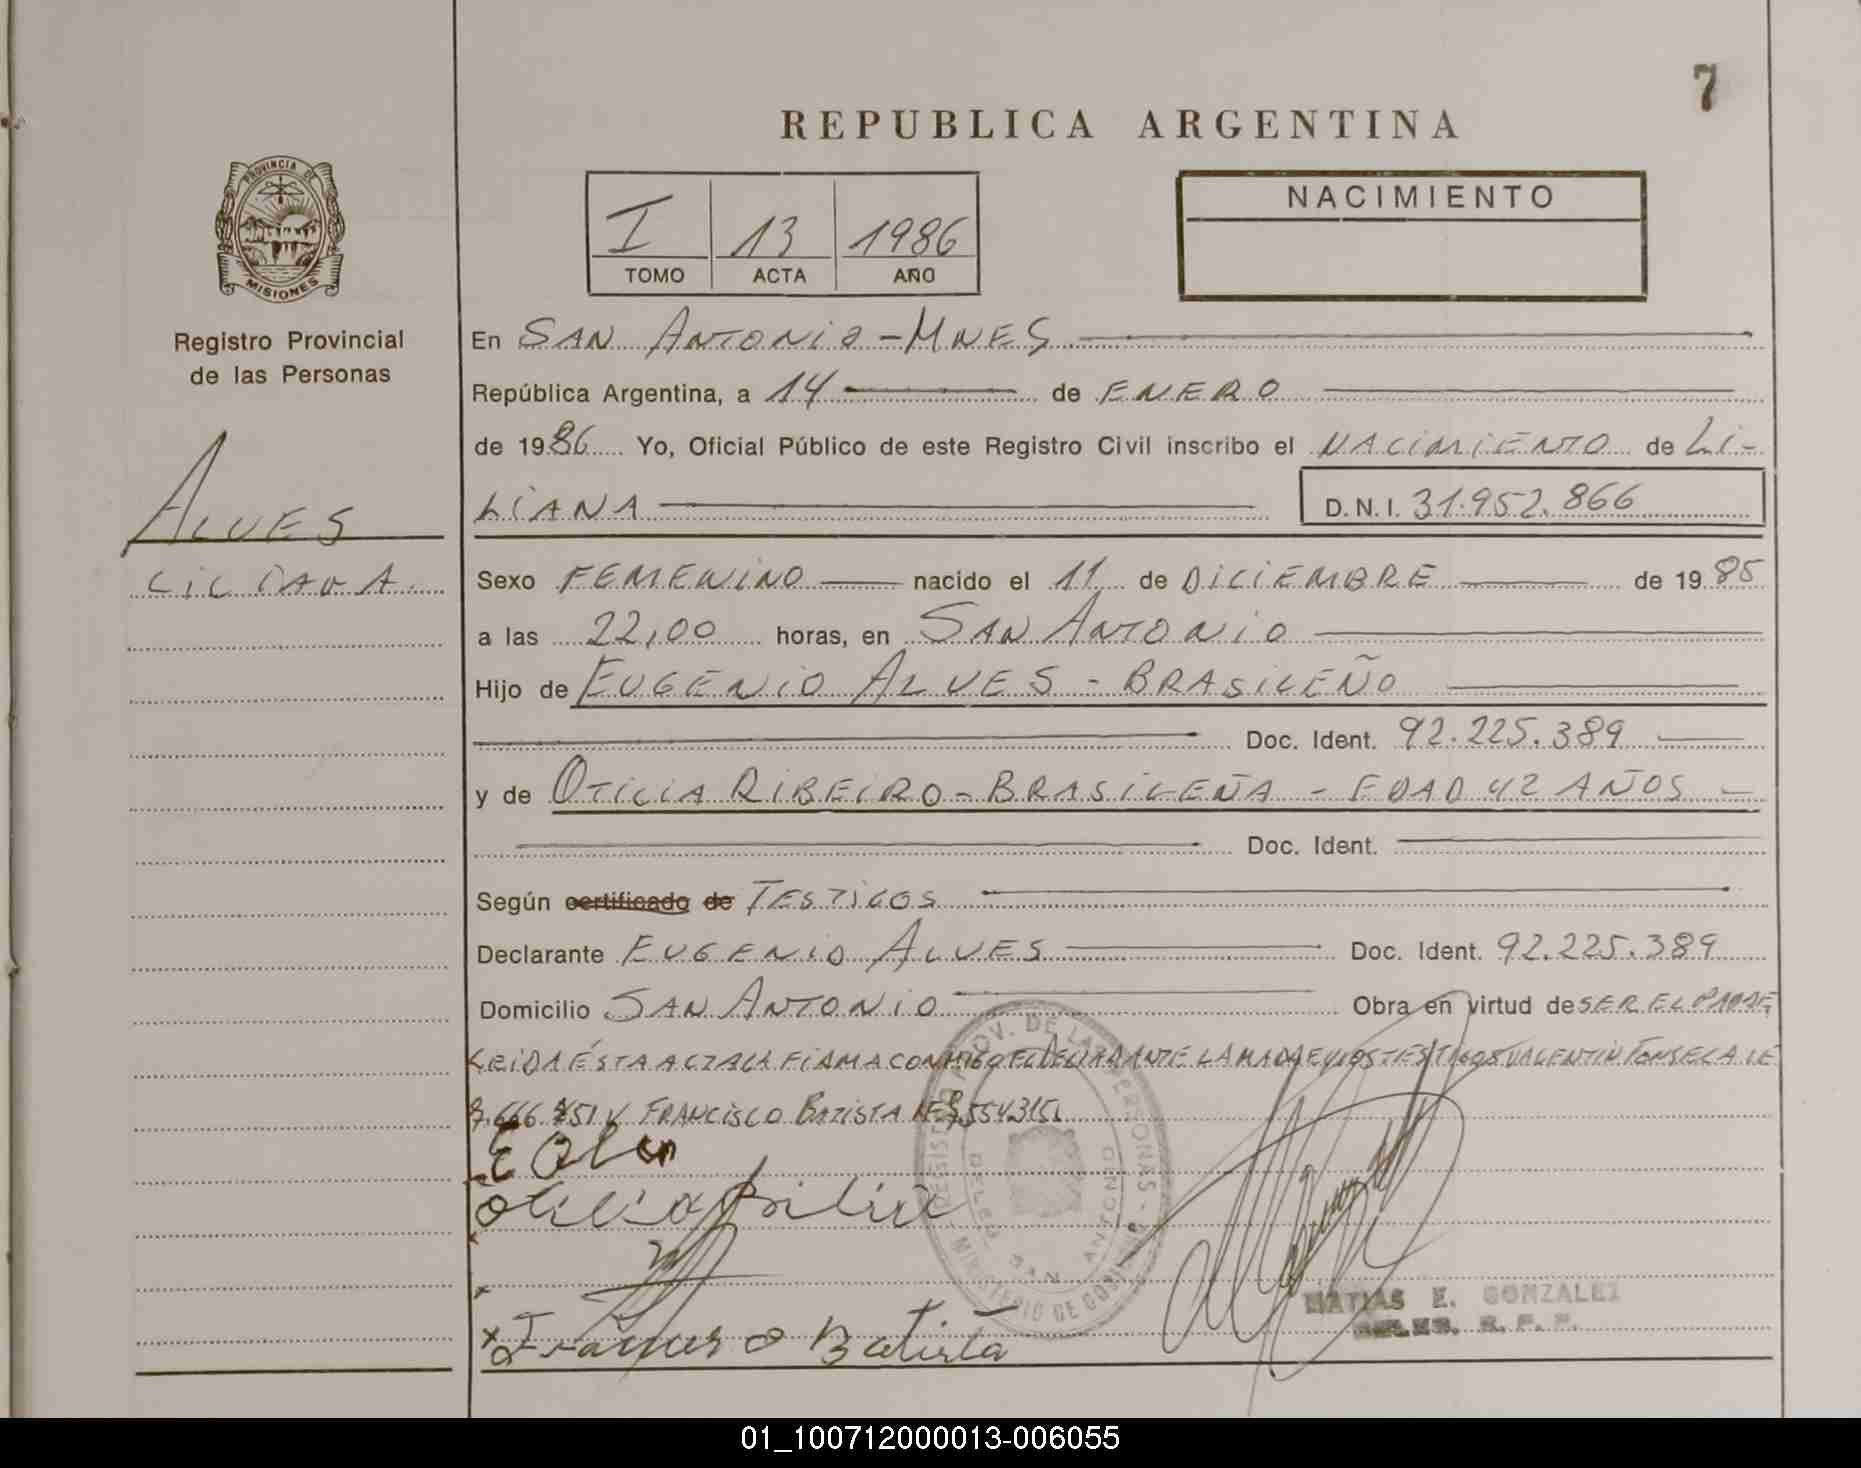 7
REPUBLICA ARGENTINA
PROVINCIA DE
MISIONES
I 13 1986
TOMO ACTA AÑO
NACIMIENTO
Registro Provincial
de las Personas
ALVES
LILIANA
En SAN ANTONIO-MNES
República Argentina, a 14 de ENERO
de 1986 Yo, Oficial Público de este Registro Civil inscribo el NACIMIENTO de LI-
LIANA D.N.I. 31.952.866
Sexo FEMENINO nacido el 11 de DICIEMBRE de 1985
a las 22,00 horas, en SAN ANTONIO
Hijo de EUGENIO ALVES - BRASILEÑO
Doc. Ident. 92.225.389
y de OTILIA RIBEIRO - BRASILEÑA - EDAD 42 AÑOS
Doc. Ident.
Según certificado de TESTIGOS
Declarante EUGENIO ALVES Doc. Ident. 92.225.389
Domicilio SAN ANTONIO Obra en virtud de SER EL PADRE,
LEIDA ÉSTA ACTA LA FIRMA CONMIGO EL DECLARANTE LA MADRE Y LOS TESTIGOS VALENTIN FONSECA LE
Y FRANCISCO BATISTA
Francisco Batista
REGISTRO PROV. DE LAS PERSONAS - MINISTERIO DE GOBIERNO
DELEG. SAN ANTONIO
MATIAS E. GONZALEZ
R. P. P.
01_100712000013-006055